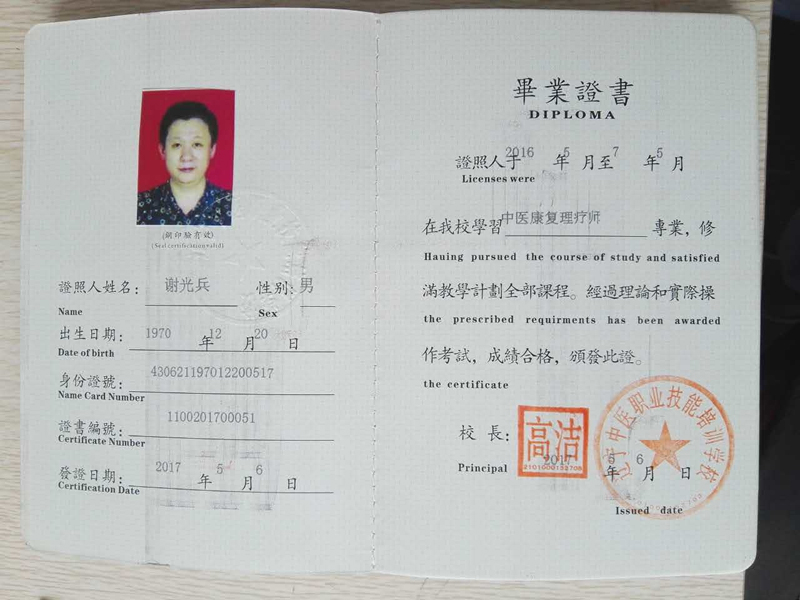 (鋼印驗有效)
(Seal certification valid)
證照人姓名: 谢光兵 性别: 男
Name Sex
出生日期: 1970 年 12 月 20 日
Date of birth
身份證號: 430621197012200517
Name Card Number
證書編號: 1100201700051
Certificate Number
發證日期: 2017 年 5 月 6 日
Certification Date
畢業證書
DIPLOMA
證照人于 2016 年 5 月至 7 年 5 月
Licenses were
在我校學習 中医康复理疗师 專業，修
Hauing pursued the course of study and satisfied
滿教學計劃全部課程。經過理論和實際操
the prescribed requirments has been awarded
作考試，成績合格，頒發此證。
the certificate
校長: 高洁
2101000132705
Principal
辽宁中医职业技能培训学校
2017 年 5 月 6 日
Issued date